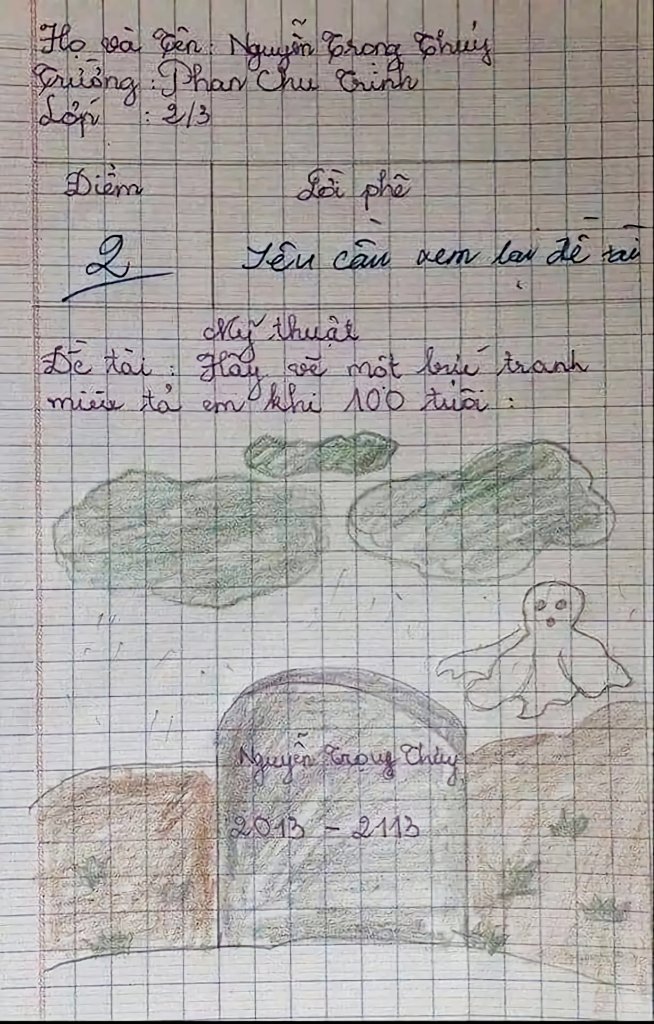 Họ và Tên: Nguyễn Trọng Thúy
Trường: Phan Chu Trinh
Lớp : 2/3
Điểm Lời phê
2 Yêu cầu xem lại đề tài
Mỹ thuật
Đề tài : Hãy vẽ một bức tranh
miêu tả em khi 100 tuổi :
Nguyễn Trọng Thúy
2013 - 2113